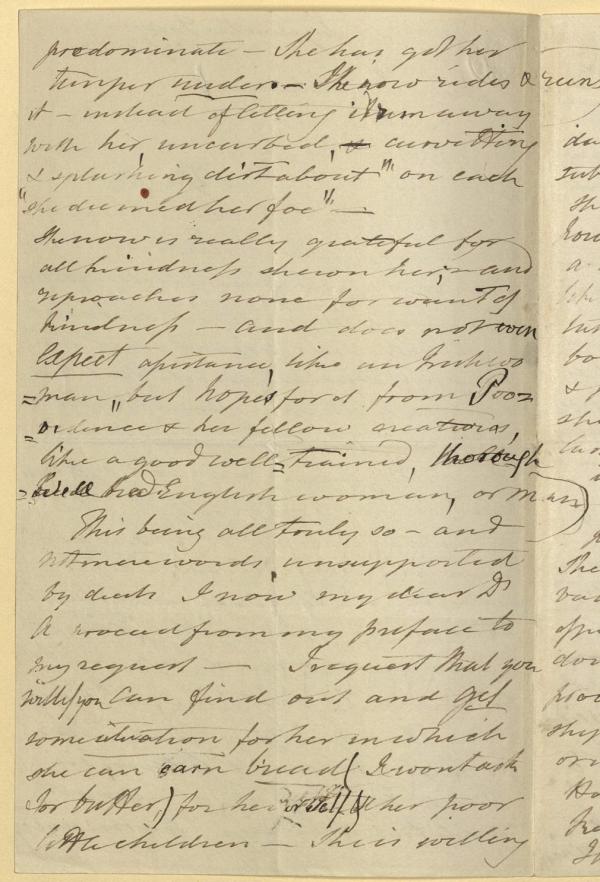 predominate — She has got her
temper under. — She now rides & reins
it — instead of letting it run away
with her uncurbed, & curvetting
& splashing dirt about" on each
"she deemed her foe" —
She now is really grateful for
all kindness shewn her, — and
reproaches none for want of
kindness — and does not even
expect assistance, like an Irish wo
=man," but hopes for it from Prov=
=idence & her fellow creatures,
like a good well=trained, thorough
=bred English woman, or man)
This being all truly so — and
not mere words unsupported
by deeds I now my dear Dr
A proceed from my preface to
my request — I request that you
will if you can find out and get
some situation for her in which
she can earn bread (I wont ask
for butter,) for herself & her poor
little children — She is willing